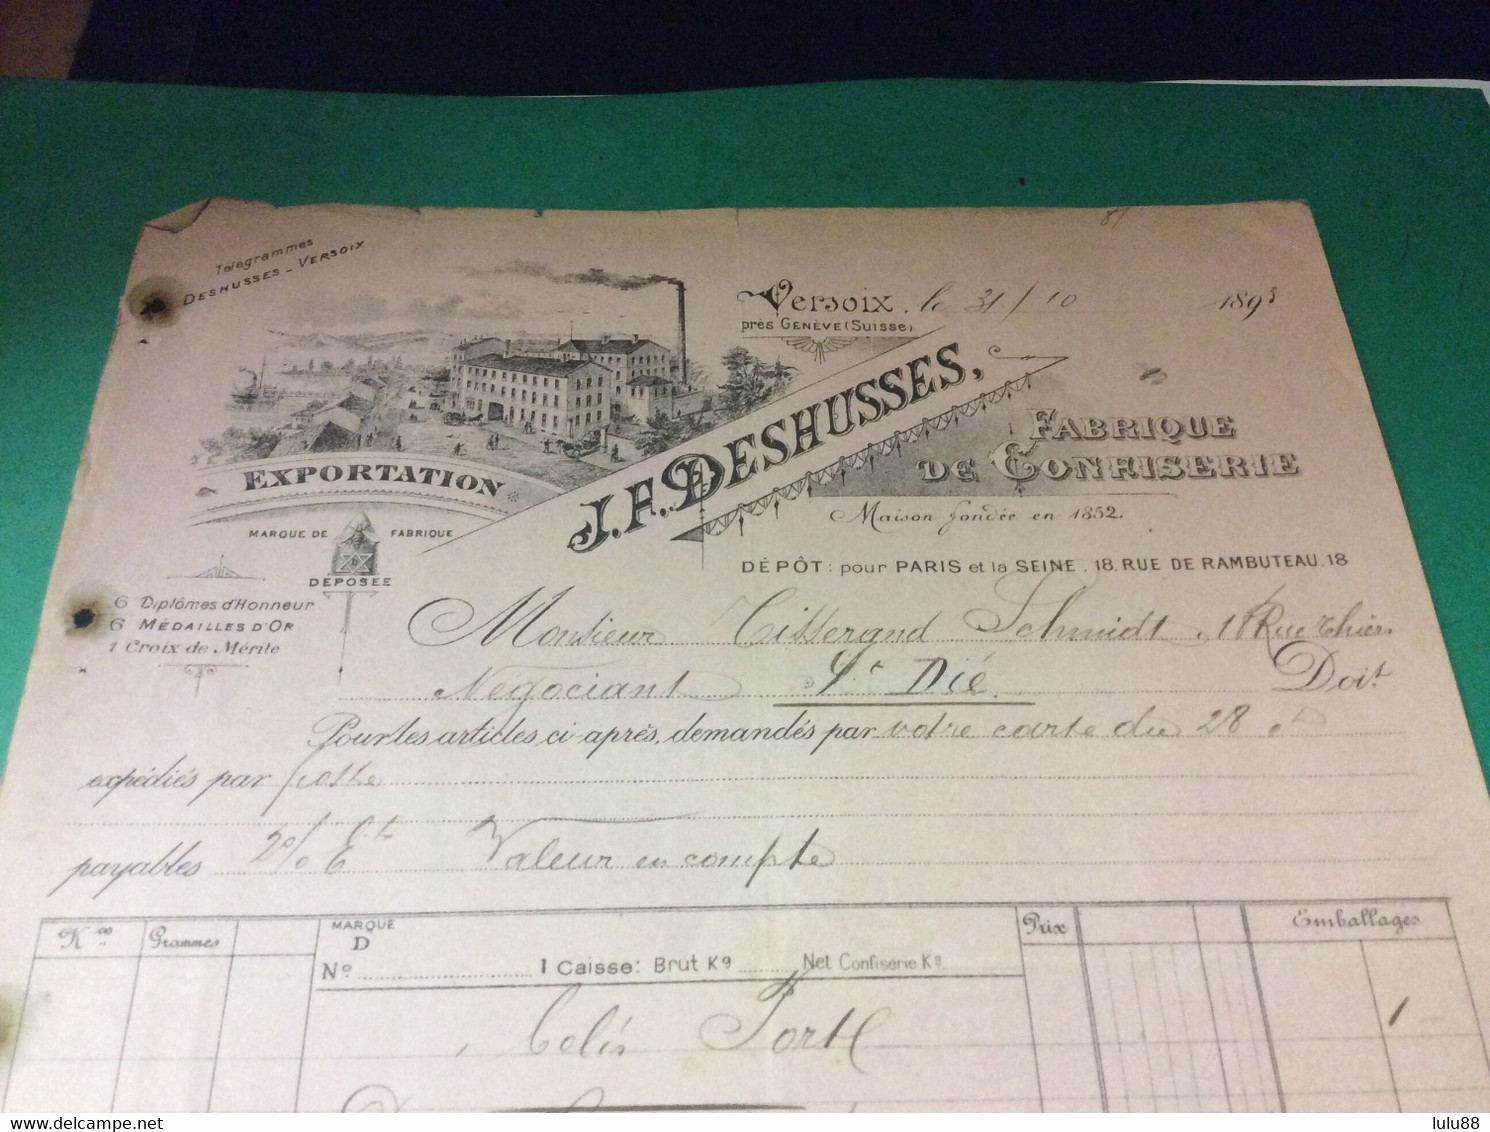 81
Télégrammes
DESHUSSES - VERSOIX
Versoix, le 31/10 1893
près GENÈVE (SUISSE)
J. F. DESHUSSES,
FABRIQUE
DE CONFISERIE
Maison fondée en 1852.
EXPORTATION
MARQUE DE FABRIQUE
DÉPOSÉE
DÉPÔT: pour PARIS et la SEINE, 18, RUE DE RAMBUTEAU, 18
6 Diplômes d'Honneur
6 MÉDAILLES D'OR
1 Croix de Mérite
Monsieur Tisserand Schmidt, 18 Rue Thiers
Négociant St Dié. Doit
Pour les articles ci-après, demandés par votre carte du 28 ct
expédiés par poste
payables 2% Ete Valeur en compte
Kos Grammes MARQUE Prix Emballages
D
No 1 Caisse: Brut Kg Net Confiserie Kg
Colis Postl 1
lulu88